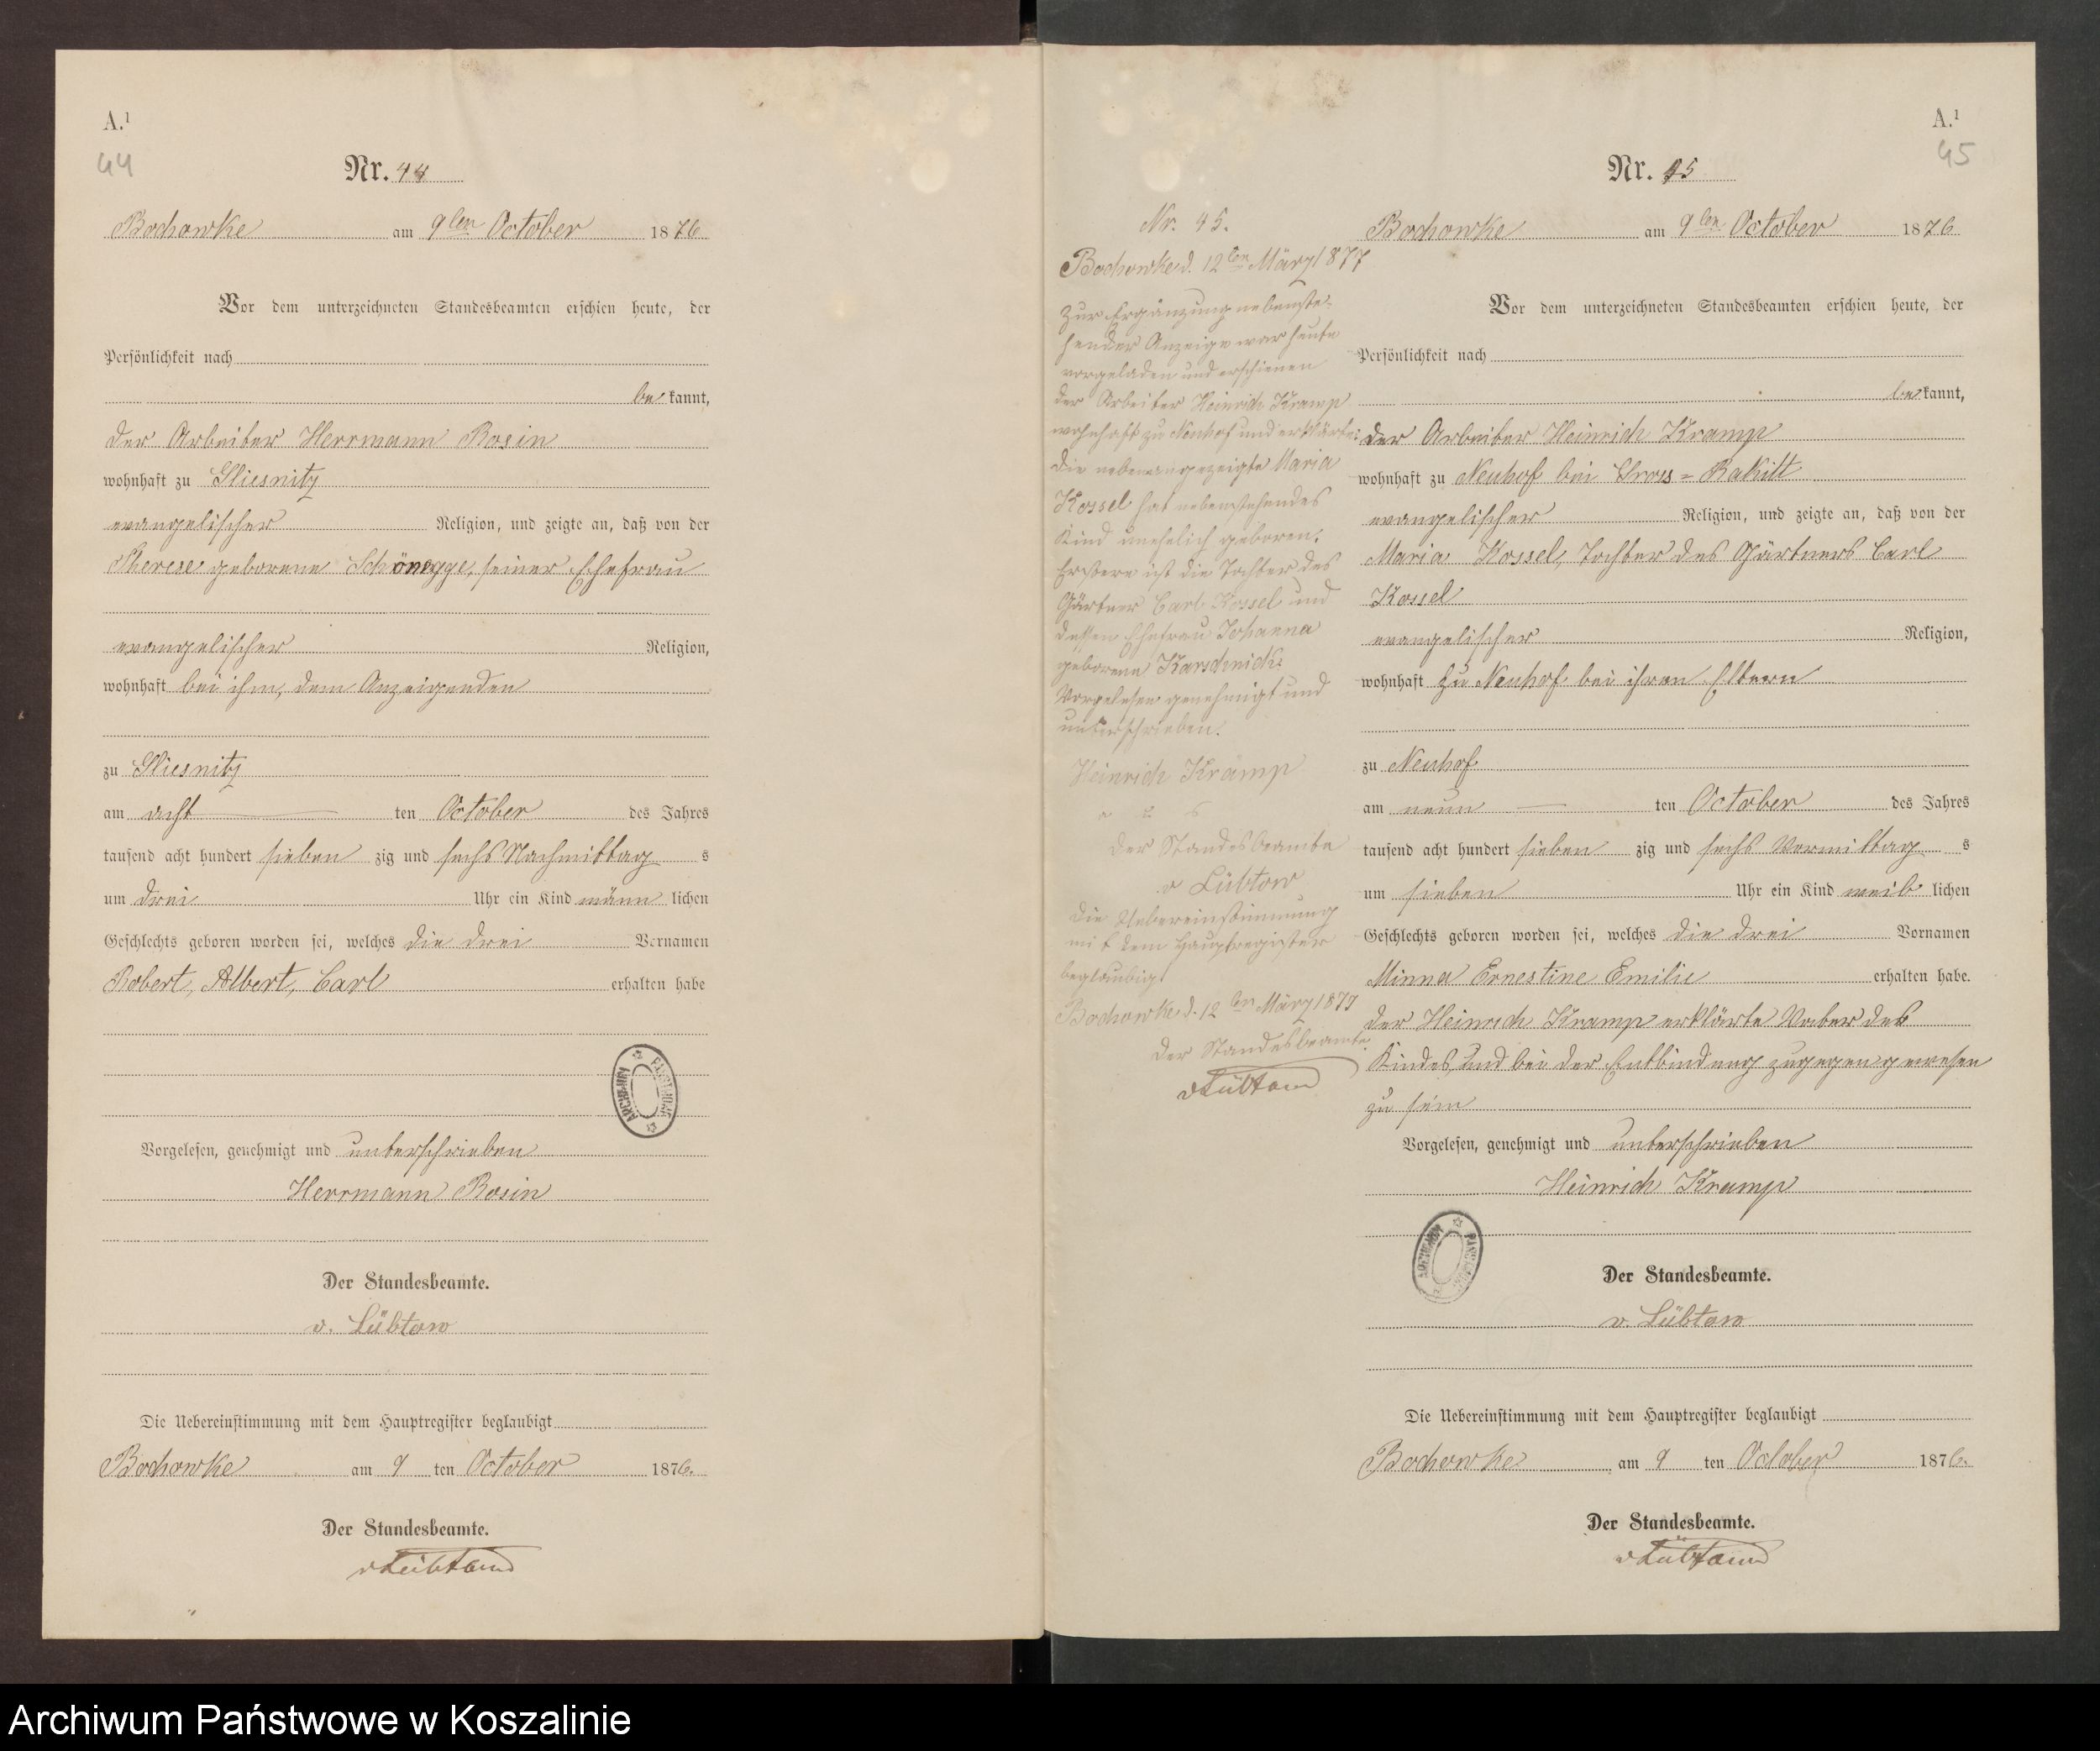 A.¹
44
Nr. 44
Bochowke am 9ten October 1876
Vor dem unterzeichneten Standesbeamten erschien heute, der
Persönlichkeit nach
be kannt,
der Arbeiter Herrmann Rosin
wohnhaft zu Gliesnitz
evangelischer Religion, und zeigte an, daß von der
Therese geborene Schönegge, seiner Ehefrau
evangelischer Religion,
wohnhaft bei ihm, dem Anzeigenden
zu Gliesnitz
am acht ten October des Jahres
tausend acht hundert sieben zig und sechs Nachmittag s
um drei Uhr ein Kind männ lichen
Geschlechts geboren worden sei, welches die drei Vornamen
Robert, Albert, Carl erhalten habe
ARCHIWUM PAŃSTWOWE
Vorgelesen, genehmigt und unterschrieben
Herrmann Rosin
Der Standesbeamte.
v. Lübtow
Die Uebereinstimmung mit dem Hauptregister beglaubigt
Bochowke am 9 ten October 1876.
Der Standesbeamte.
vLübtow
Nr. 45.
Bochowke d. 12ten März 1877
Zur Ergänzung nebenste-
hender Anzeige war heute
vorgeladen und erschienen
der Arbeiter Heinrich Kramp
wohnhaft zu Neuhof und erklärte:
die nebenangezeigte Maria
Kossel hat nebenstehendes
Kind unehelich geboren.
Erstere ist die Tochter des
Gärtner Carl Kossel und
dessen Ehefrau Johanna
geborene Karschnick.
Vorgelesen genehmigt und
unterschrieben.
Heinrich Kramp
Der Standesbeamte
v Lübtow
Die Uebereinstimmung
mit dem Hauptregister
beglaubigt
Bochowke d. 12ten März 1877
Der Standesbeamte
vLübtow
A.¹
45
Nr. 45
Bochowke am 9ten October 1876
Vor dem unterzeichneten Standesbeamten erschien heute, der
Persönlichkeit nach
be kannt,
der Arbeiter Heinrich Kramp
wohnhaft zu Neuhof bei Gross=Rakitt
evangelischer Religion, und zeigte an, daß von der
Maria Kossel, Tochter des Gärtners Carl
Kossel
evangelischer Religion,
wohnhaft zu Neuhof bei ihren Eltern
zu Neuhof
am neun ten October des Jahres
tausend acht hundert sieben zig und sechs Vormittag s
um sieben Uhr ein Kind weib lichen
Geschlechts geboren worden sei, welches die drei Vornamen
Minna Ernestine Emilie erhalten habe.
der Heinrich Kramp erklärte Vater des
Kindes, und bei der Entbindung zugegen gewesen
zu sein
Vorgelesen, genehmigt und unterschrieben
Heinrich Kramp
ARCHIWUM PAŃSTWOWE
Der Standesbeamte.
v. Lübtow
Die Uebereinstimmung mit dem Hauptregister beglaubigt
Bochowke am 9 ten October 1876.
Der Standesbeamte.
vLübtow
Archiwum Państwowe w Koszalinie